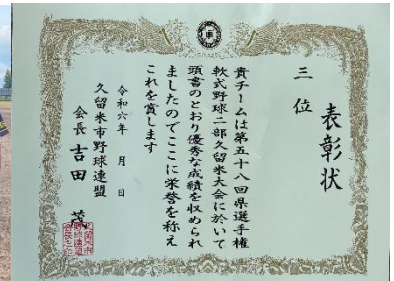 表彰状
三位
貴チームは第五十八回県選手権
軟式野球二部久留米大会に於いて
頭書のとおり優秀な成績を収められ
ましたのでここに栄誉を称え
これを賞します
令和六年 月 日
久留米市野球連盟
会長 吉田 茂